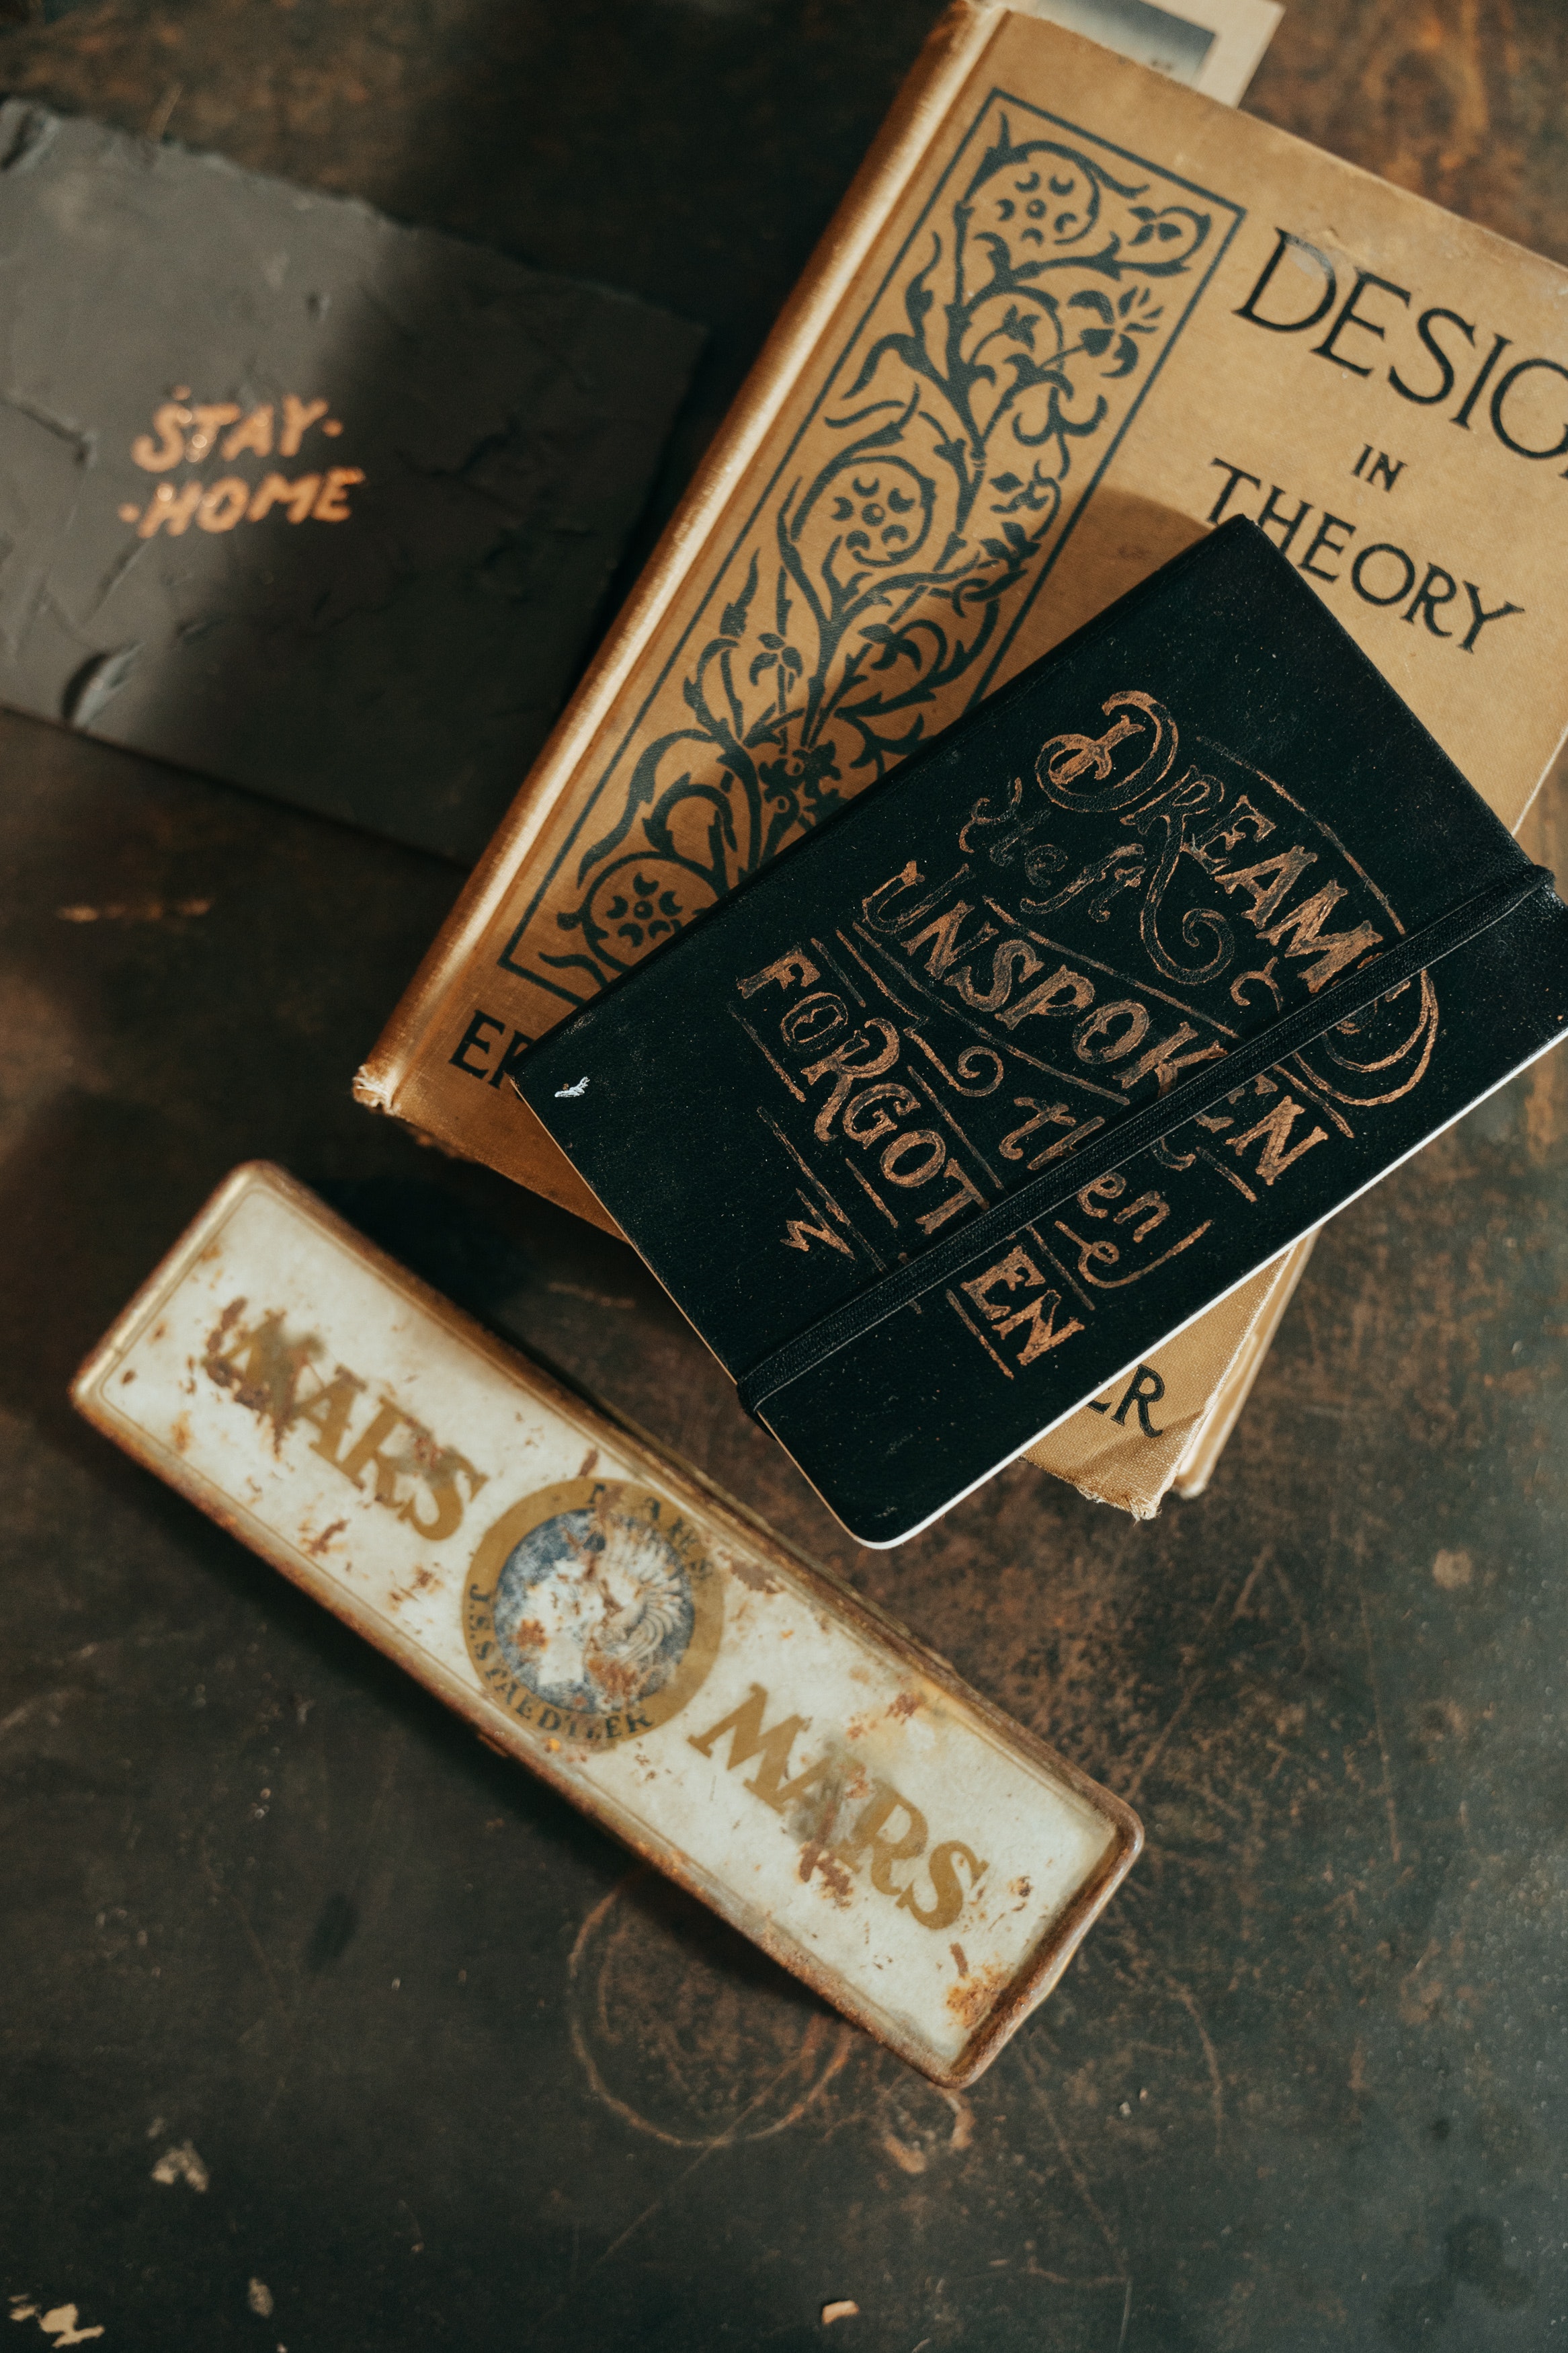 STAY·
·HOME
DESIG
IN
THEORY
ER
ER
DREAMS
left
UNSPOKEN
then
FORGOTTEN
MARS
MARS
J.S.STAEDTLER
MARS